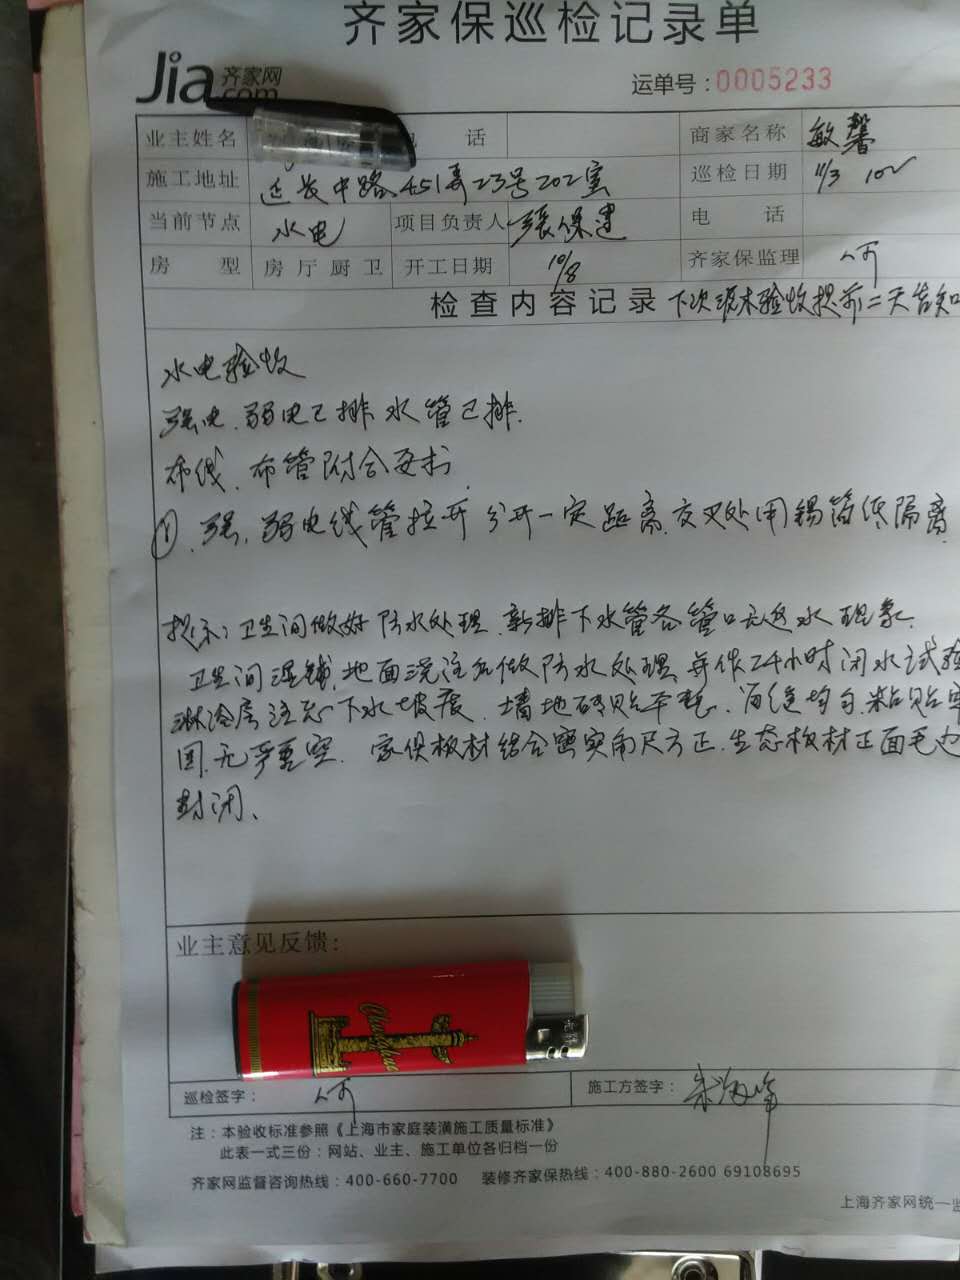 齐家保巡检记录单
Jia.com 齐家网
运单号：0005233
业主姓名 话 商家名称 敏馨
施工地址 延长中路451弄23号202室 巡检日期 11/3
当前节点 水电 项目负责人 張保建 电 话
房 型 房 厅 厨 卫 开工日期 10/8 齐家保监理
检查内容记录 下次泥木验收提前二天告知
水电验收
强电、弱电已排 水管已排.
布线、布管附合要求
① 强、弱电线管拉开 分开一定距离 交叉处用锡箔纸隔离
提示: 卫生间做好防水处理、新排下水管各管口无返水现象.
卫生间湿铺、地面浇注和做防水处理 并作24小时闭水试验
淋浴房注意下水坡度、墙地砖贴平整、缝均匀、粘贴牢
固、无空. 家俱板材结合密实角尺方正、生态板材正面毛边
封闭、
业主意见反馈：
Chunghwa
巡检签字：
施工方签字：
注：本验收标准参照《上海市家庭装潢施工质量标准》
此表一式三份：网站、业主、施工单位各归档一份
齐家网监督咨询热线：400-660-7700 装修齐家保热线：400-880-2600 69108695
上海齐家网统一监